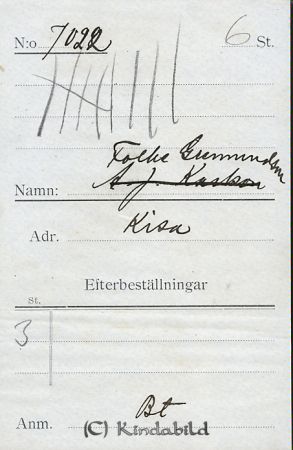 N:o 7022 6 St.
Folke Gummundson
Namn: A. J. Karlson
Adr. Kisa
Efterbeställningar
St.
3
Anm. Bt
(C) Kindabild